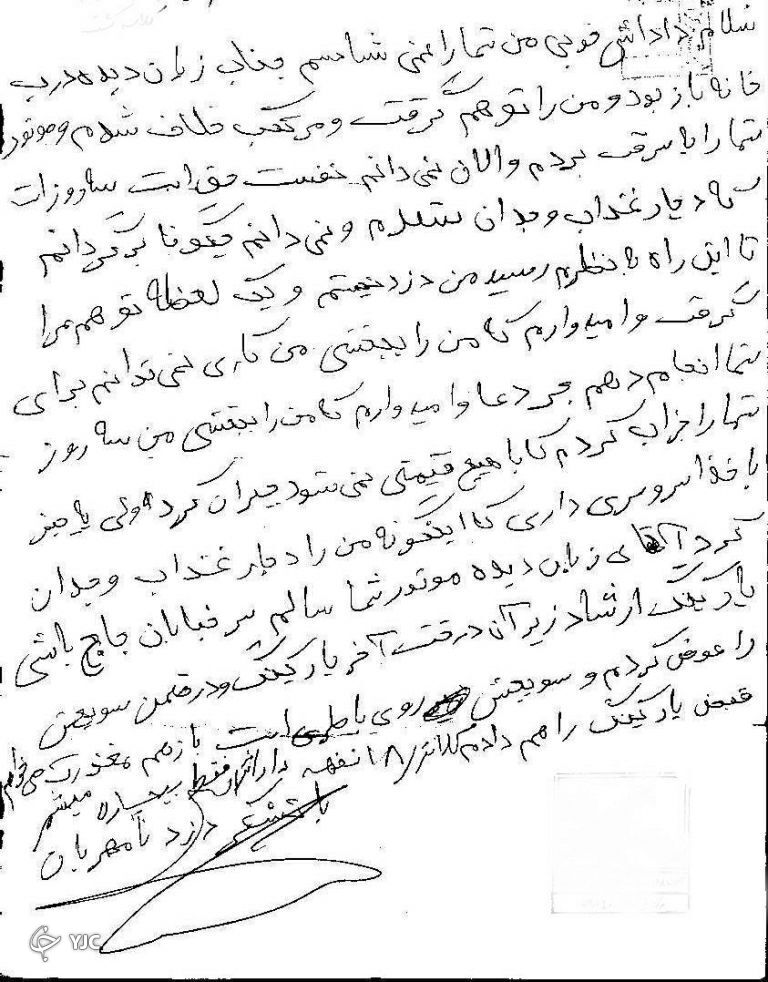 سلام داداش خوبی من شما را نمی شناسم جناب زیان دیده درب
خانه باز بود و من را توهم گرفت و مرتکب خلاف شدم و موتور
شما را با سرقت بردم و الان نمی دانم نخست سه روز است
که دچار عذاب وجدان شدم و نمی دانم چگونا برگردانم
تا این راه با نظرم رسید من دزد نیستم و یک لحظه توهم مرا
گرفت و امیدوارم کا من را ببخشی من کاری نمی توانم برای
شما انجام دهم جز دعا و امیدوارم کا من را ببخشی من سه روز
شما را خراب کردم کا با هیچ قیمتی نمی شود جبران کرد ولی
با خدا سر و سری داری کا اینگونه من را دچار عذاب وجدان
کرد آقای زیان دیده موتور شما سالم سر خیابان باشی
پارکینگ ارشاد زیر آن درخت آخر پارکینگ و در ضمن سویچش
را عوض کردم و سویچش روی است بازهم معذرت می خوام
قبض پارکینگ را هم دادم کلانتری ۱۸ نفهمه فقط بیچاره میشم
با تشکر دزد نامهربان
YJC